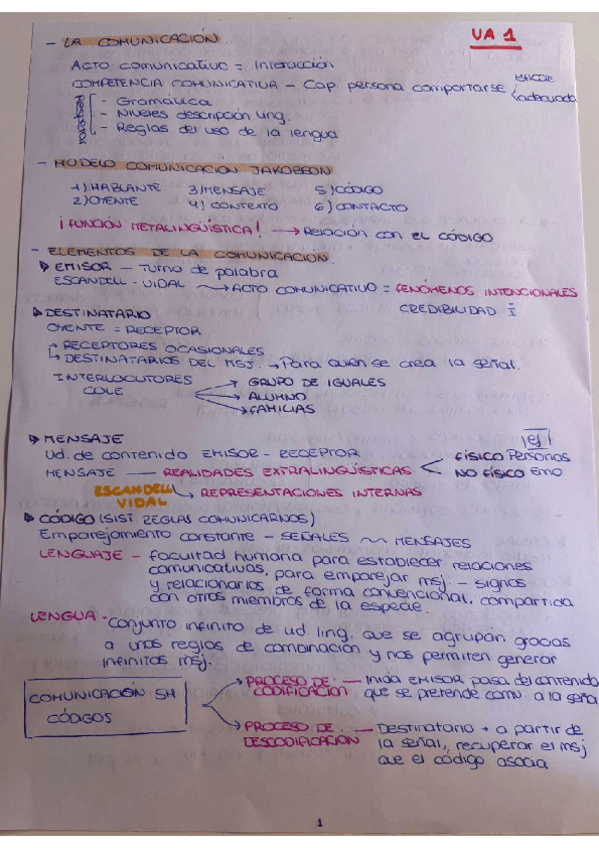 UA 1
- LA COMUNICACIÓN
ACTO COMUNICATIVO = Interacción
COMPETENCIA COMUNICATIVA - Cap. persona comportarse eficaz adecuada
Respetar
- Gramática
- Niveles descripción ling.
- Reglas del uso de la lengua
- MODELO COMUNICACIÓN JAKOBSON
1) HABLANTE 3) MENSAJE 5) CÓDIGO
2) OYENTE 4) CONTEXTO 6) CONTACTO
¡FUNCIÓN METALINGÜÍSTICA! → Relación con el CÓDIGO
- ELEMENTOS DE LA COMUNICACIÓN
EMISOR - Turno de palabra
ESCANDELL-VIDAL → ACTO COMUNICATIVO = FENÓMENOS INTENCIONALES
DESTINATARIO CREDIBILIDAD
OYENTE = RECEPTOR
RECEPTORES OCASIONALES
DESTINATARIOS DEL MSJ. → Para quien se crea la señal.
INTERLOCUTORES → GRUPO DE IGUALES
COLE → ALUMNO
→ FAMILIAS
MENSAJE ej
Ud. de contenido EMISOR - RECEPTOR FÍSICO Personas
MENSAJE — REALIDADES EXTRALINGÜÍSTICAS NO FÍSICO Emo
ESCANDELL VIDAL → REPRESENTACIONES INTERNAS
CÓDIGO (SIST. REGLAS COMUNICARNOS)
Emparejamiento constante - SEÑALES ~ MENSAJES
LENGUAJE - facultad humana para establecer relaciones
comunicativas, para emparejar msj - signos
y relacionarlos de forma convencional, compartida
con otros miembros de la especie.
LENGUA - Conjunto infinito de ud. ling. que se agrupan gracias
a unas reglas de combinación y nos permiten generar
infinitos msj.
COMUNICACIÓN SH
CÓDIGOS
→ PROCESO DE CODIFICACIÓN — Inicia EMISOR pasa del contenido
que se pretende comu a la seña
→ PROCESO DE DESCODIFICACIÓN — Destinatario → a partir de
la señal, recuperar el msj
que el código asocia
1